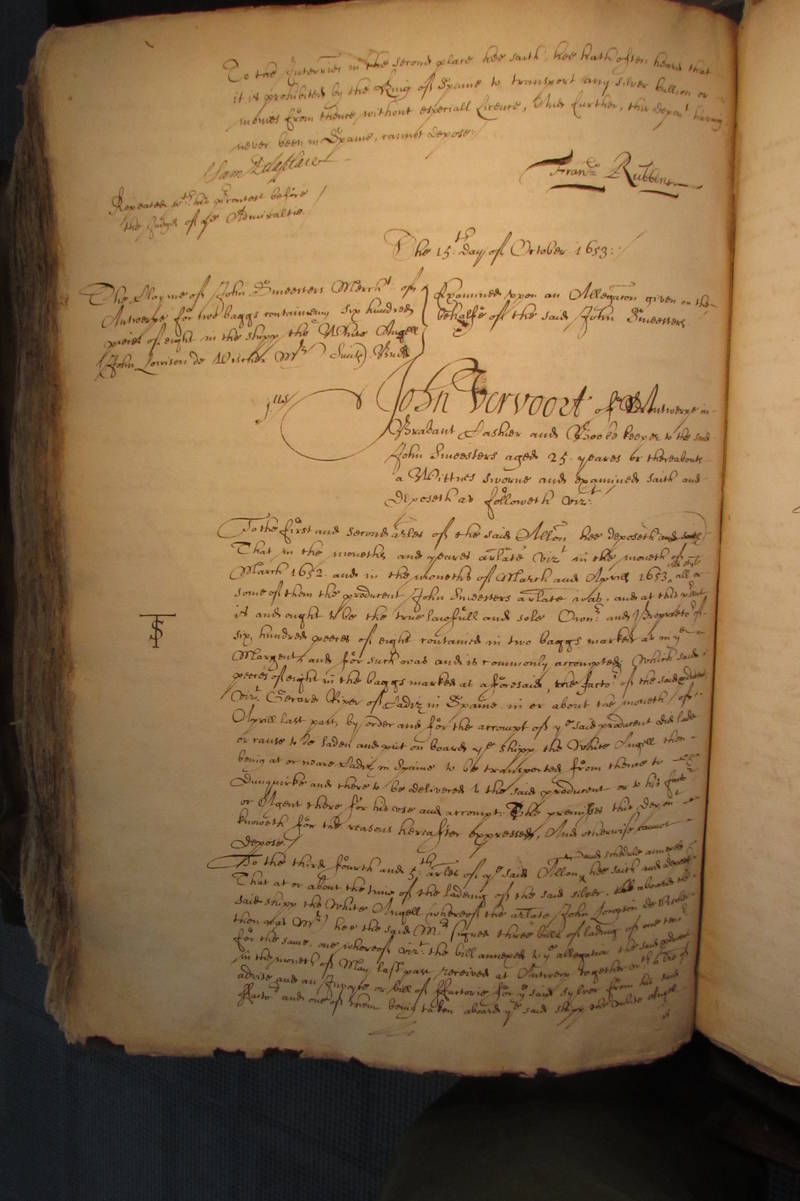 To the Interries in the second place hee saith, hee hath often heard that
it is prohibited by the King of Spaine to transport any silver bullion or
monies from thence without especiall licence, And further, this depont having
never been in Spaine, cannot depose./
Fran:co Rubbens
Repeated wth his precontest before
the Judges of ye Admiraltie /
The 15th day of October 1653:/
The Clayme of John Smeesters Mercht of
Antwerpe for two baggs containeing six hundred
pieces of eight in the shipp the White Angell
(John de Mr)
Examined upon an Allegaton given on the
behalfe of the said John Smeesters
jus
John Vervoort of Antwerpe in
Brabant Cashier and Booke keeper to the said
John Smeesters aged 25 yeares or thereabouts
a Wittnes sworne and examined saith and
deposeth as followeth vizt:
To the first and second arles of the said Allon hee deposeth and saith
That in the moneths and yeares arlate vizt in the moneth of
March 1652 and in the moneths of March and Aprill 1653, all or
some of them the producent John Smeesters arlate was, and at this
is and ought to be the true lawfull and sole Owner and Proprietor of
six hundred peeces of eight contained in two baggs marked as in ye
Margent, and for such was and is commonly accompted; Which said
peeces of eight in the baggs marked as aforesaid, the factor of the said producent
vizt Gerard of Cadiz in Spaine in or about the moneth of
Aprill last past, by order and for the accompt of ye said producent did lade
or cause to be laden and put on board ye shipp the White Angell then
being at or neare Cadiz in Spaine to be transported from thence to
Dunquirke and there to be delivered to the said producent or to his factor
or Agent there for his use and accompt: The premisses this depont
knoweth for the reasons hereafter expressed, And otherwise cannot
depose./
To the third fourth and 5th arles of ye said Allon and schedule annexed hee saith and deposeth
That at or about the time of the ladeing of the said silver aboard the
said shipp the White Angell (whereof the arlate John de
then was Mr) hee the said Mr signed three bills of lading of one tenr
for the same, one whereof vizt the bill annexed to ye allegation the said producent
in the moneth of May last past received at Antwerp together wth a lre of
advise and an Invoyce or bill of Factorie for ye said sylver from his said
Factor and one of them being taken aboard ye said shipp the White Angel